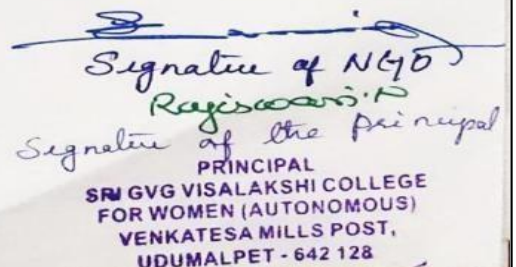 Signature of NGO
Rajiswari.N
Signature of the Principal
PRINCIPAL
SRI GVG VISALAKSHI COLLEGE
FOR WOMEN (AUTONOMOUS)
VENKATESA MILLS POST,
UDUMALPET - 642 128